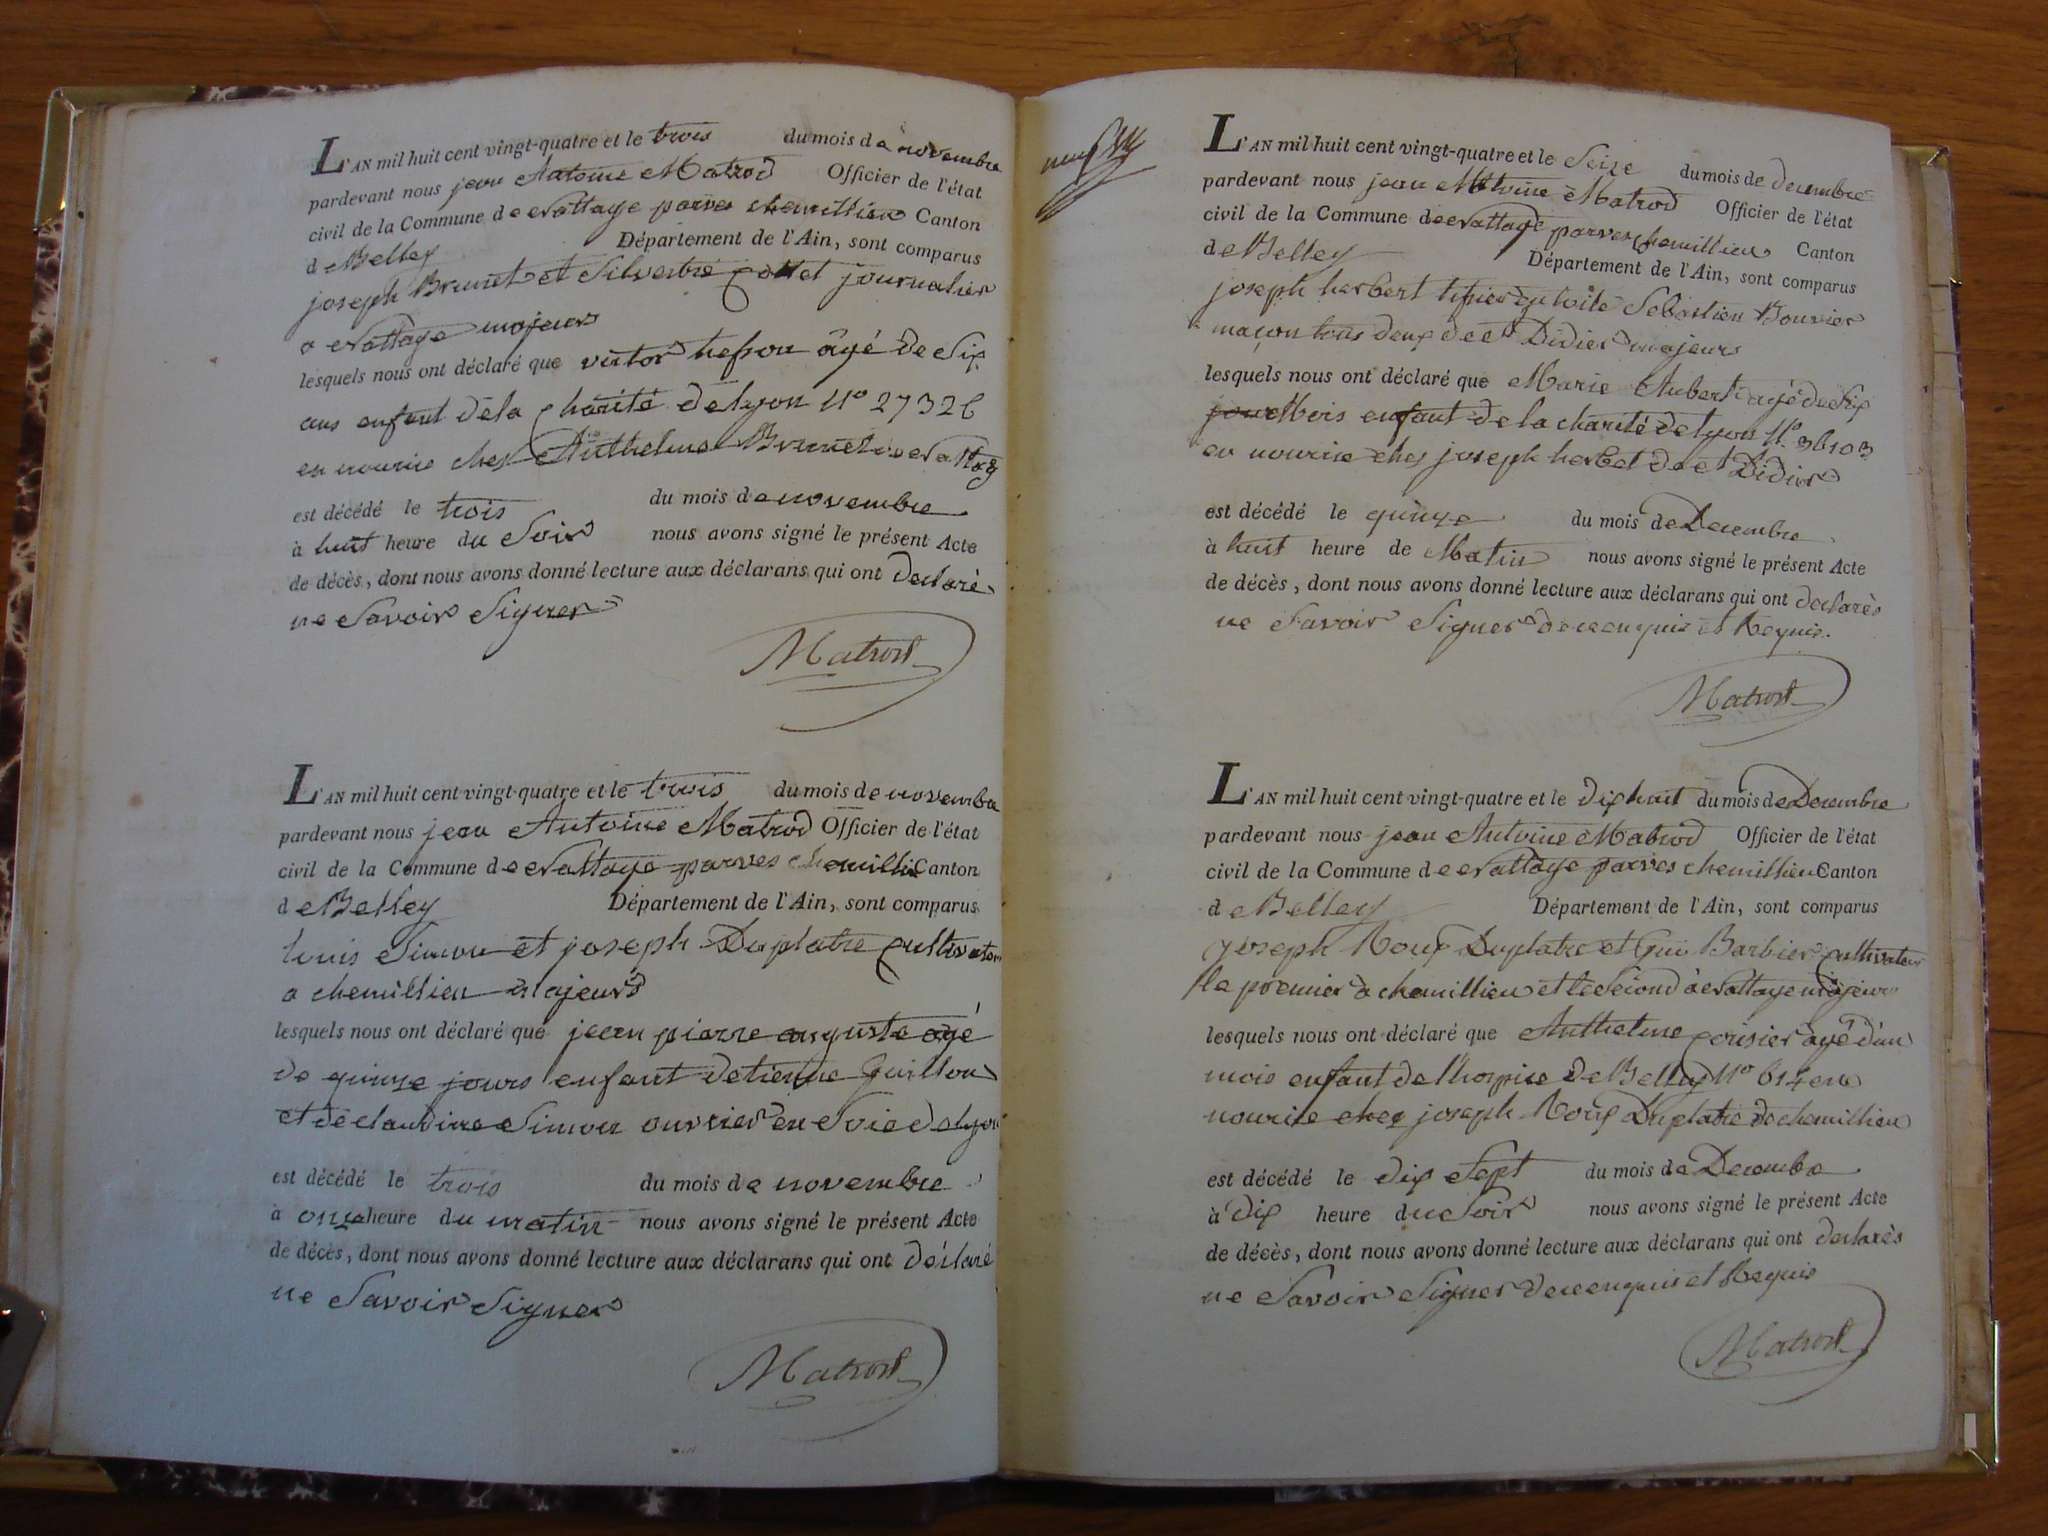 L'AN mil huit cent vingt-quatre et le trois du mois de novembre
pardevant nous jean Antoine Matrod Officier de l'état
civil de la Commune de parves chemillieu Canton
de Belley Département de l'Ain, sont comparus
joseph Brunet et Silvestre journalier
a majeurs
lesquels nous ont déclaré que victor âgé de Six
ans enfant de la charité de lyon No
en nourice chez Anthelme Brunet de
est décédé le trois du mois de novembre
à huit heure du Soir nous avons signé le présent Acte
de décès, dont nous avons donné lecture aux déclarans qui ont declaré
ne Savoir Signer
Matrod
L'AN mil huit cent vingt-quatre et le trois du mois de novembre
pardevant nous jean Antoine Matrod Officier de l'état
civil de la Commune de parves Canton
de Belley Département de l'Ain, sont comparus
louis Simon et joseph Duplatre
a chemillieu majeurs
lesquels nous ont déclaré que jean pierre auguste agé
de quinze jours enfant detienne Guillon
et de claudine Simon ouvrier en Soie de lyon
est décédé le trois du mois de novembre
à onze heure du matin nous avons signé le présent Acte
de décès, dont nous avons donné lecture aux déclarans qui ont déclaré
ne Savoir Signer
Matrod
L'AN mil huit cent vingt-quatre et le Seize du mois de decembre
pardevant nous jean Matrod Officier de l'état
civil de la Commune de parves chemillieu Canton
de Belley Département de l'Ain, sont comparus
joseph herbert Sebastien Bouvier
maçon tous deux de Didier majeurs
lesquels nous ont déclaré que Marie Aubert agé de Six
Mois enfant de la charité de lyon No 36103
en nourice chez joseph de Didier
est décédé le quinze du mois de Decembre
à huit heure de Matin nous avons signé le présent Acte
de décès, dont nous avons donné lecture aux déclarans qui ont declarés
ne Savoir Signer de ce enquis et Requis.
Matrod
L'AN mil huit cent vingt-quatre et le dix huit du mois de Decembre
pardevant nous jean Antoine Matrod Officier de l'état
civil de la Commune de parves chemillieu Canton
de Belley Département de l'Ain, sont comparus
joseph Roux Duplatre et Gui Barbier cultivateur
le premier à chemillieu et le Second à
lesquels nous ont déclaré que Anthelme agé d'un
mois enfant de l'hospice de Belley No 614 en
nourice chez joseph Roux Duplatre de chemillieu
est décédé le dix Sept du mois de Decembre
à dix heure du Soir nous avons signé le présent Acte
de décès, dont nous avons donné lecture aux déclarans qui ont declarés
ne Savoir Signer de ce enquis et Requis
Matrod